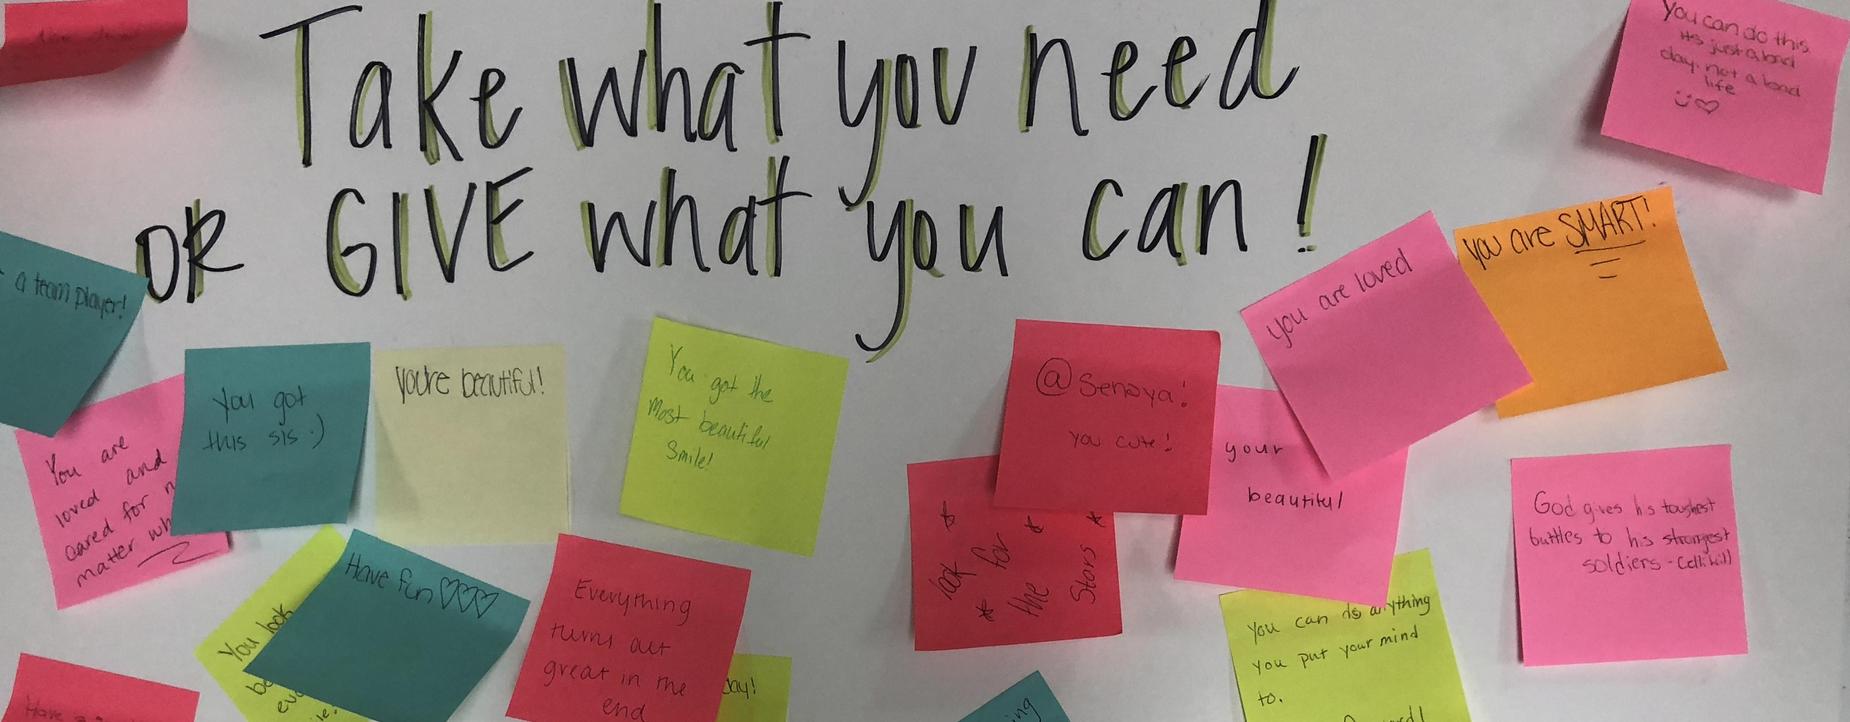 Take what you need
OR GIVE what you can!
You can do this
its just a bad
day, not a bad
life
you are SMART!
you are loved
a team player!
You got
this sis :)
you're beautiful!
You got the
most beautiful
Smile!
@Senaya!
you cute!
your
beautiful
You are
loved and
cared for
matter
look
for
the
Stars
God gives his toughest
battles to his strongest
soldiers -
Have fun
You look
Everything
turns out
great in the
end
You can do anything
you put your mind
to.